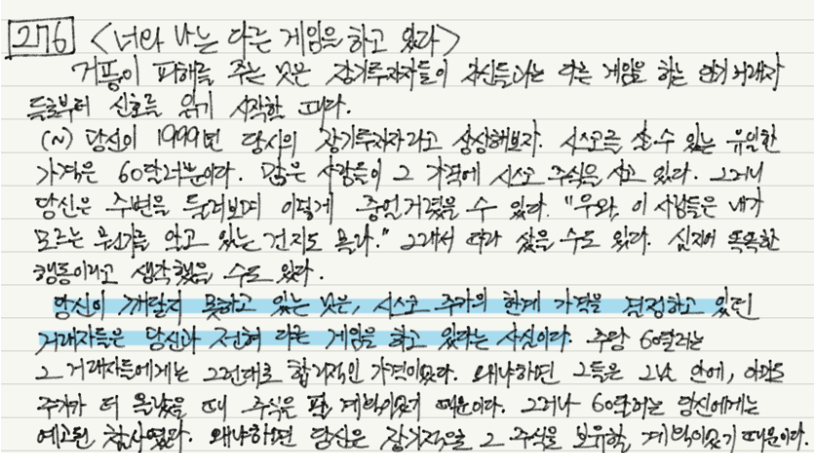 276 <너와 나는 다른 게임을 하고 있다>
거품이 피해를 주는 것은 장기투자자들이 자신들과는 다른 게임을 하는 단기 거래자
들로부터 신호를 읽기 시작한 때다.
(~) 당신이 1999년 당시의 장기투자자라고 상상해보자. 시스코를 살 수 있는 유일한
가격은 60달러뿐이다. 많은 사람들이 그 가격에 시스코 주식을 사고 있다. 그러니
당신은 주변을 둘러보며 이렇게 중얼거렸을 수 있다. "우와, 이 사람들은 내가
모르는 뭔가를 알고 있는 건지도 몰라." 그래서 따라 샀을 수도 있다. 심지어 똑똑한
행동이라고 생각했을 수도 있다.
당신이 깨닫지 못하고 있는 것은, 시스코 주가의 한계 가격을 결정하고 있던
거래자들은 당신과 전혀 다른 게임을 하고 있다는 사실이다. 주당 60달러는
그 거래자들에게는 그런대로 합리적인 가격이었다. 왜냐하면 그들은 그날 안에, 아마도
주가가 더 올랐을 때 주식을 팔 계획이었기 때문이다. 그러나 60달러는 당신에게는
예고된 참사였다. 왜냐하면 당신은 장기적으로 그 주식을 보유할 계획이었기 때문이다.